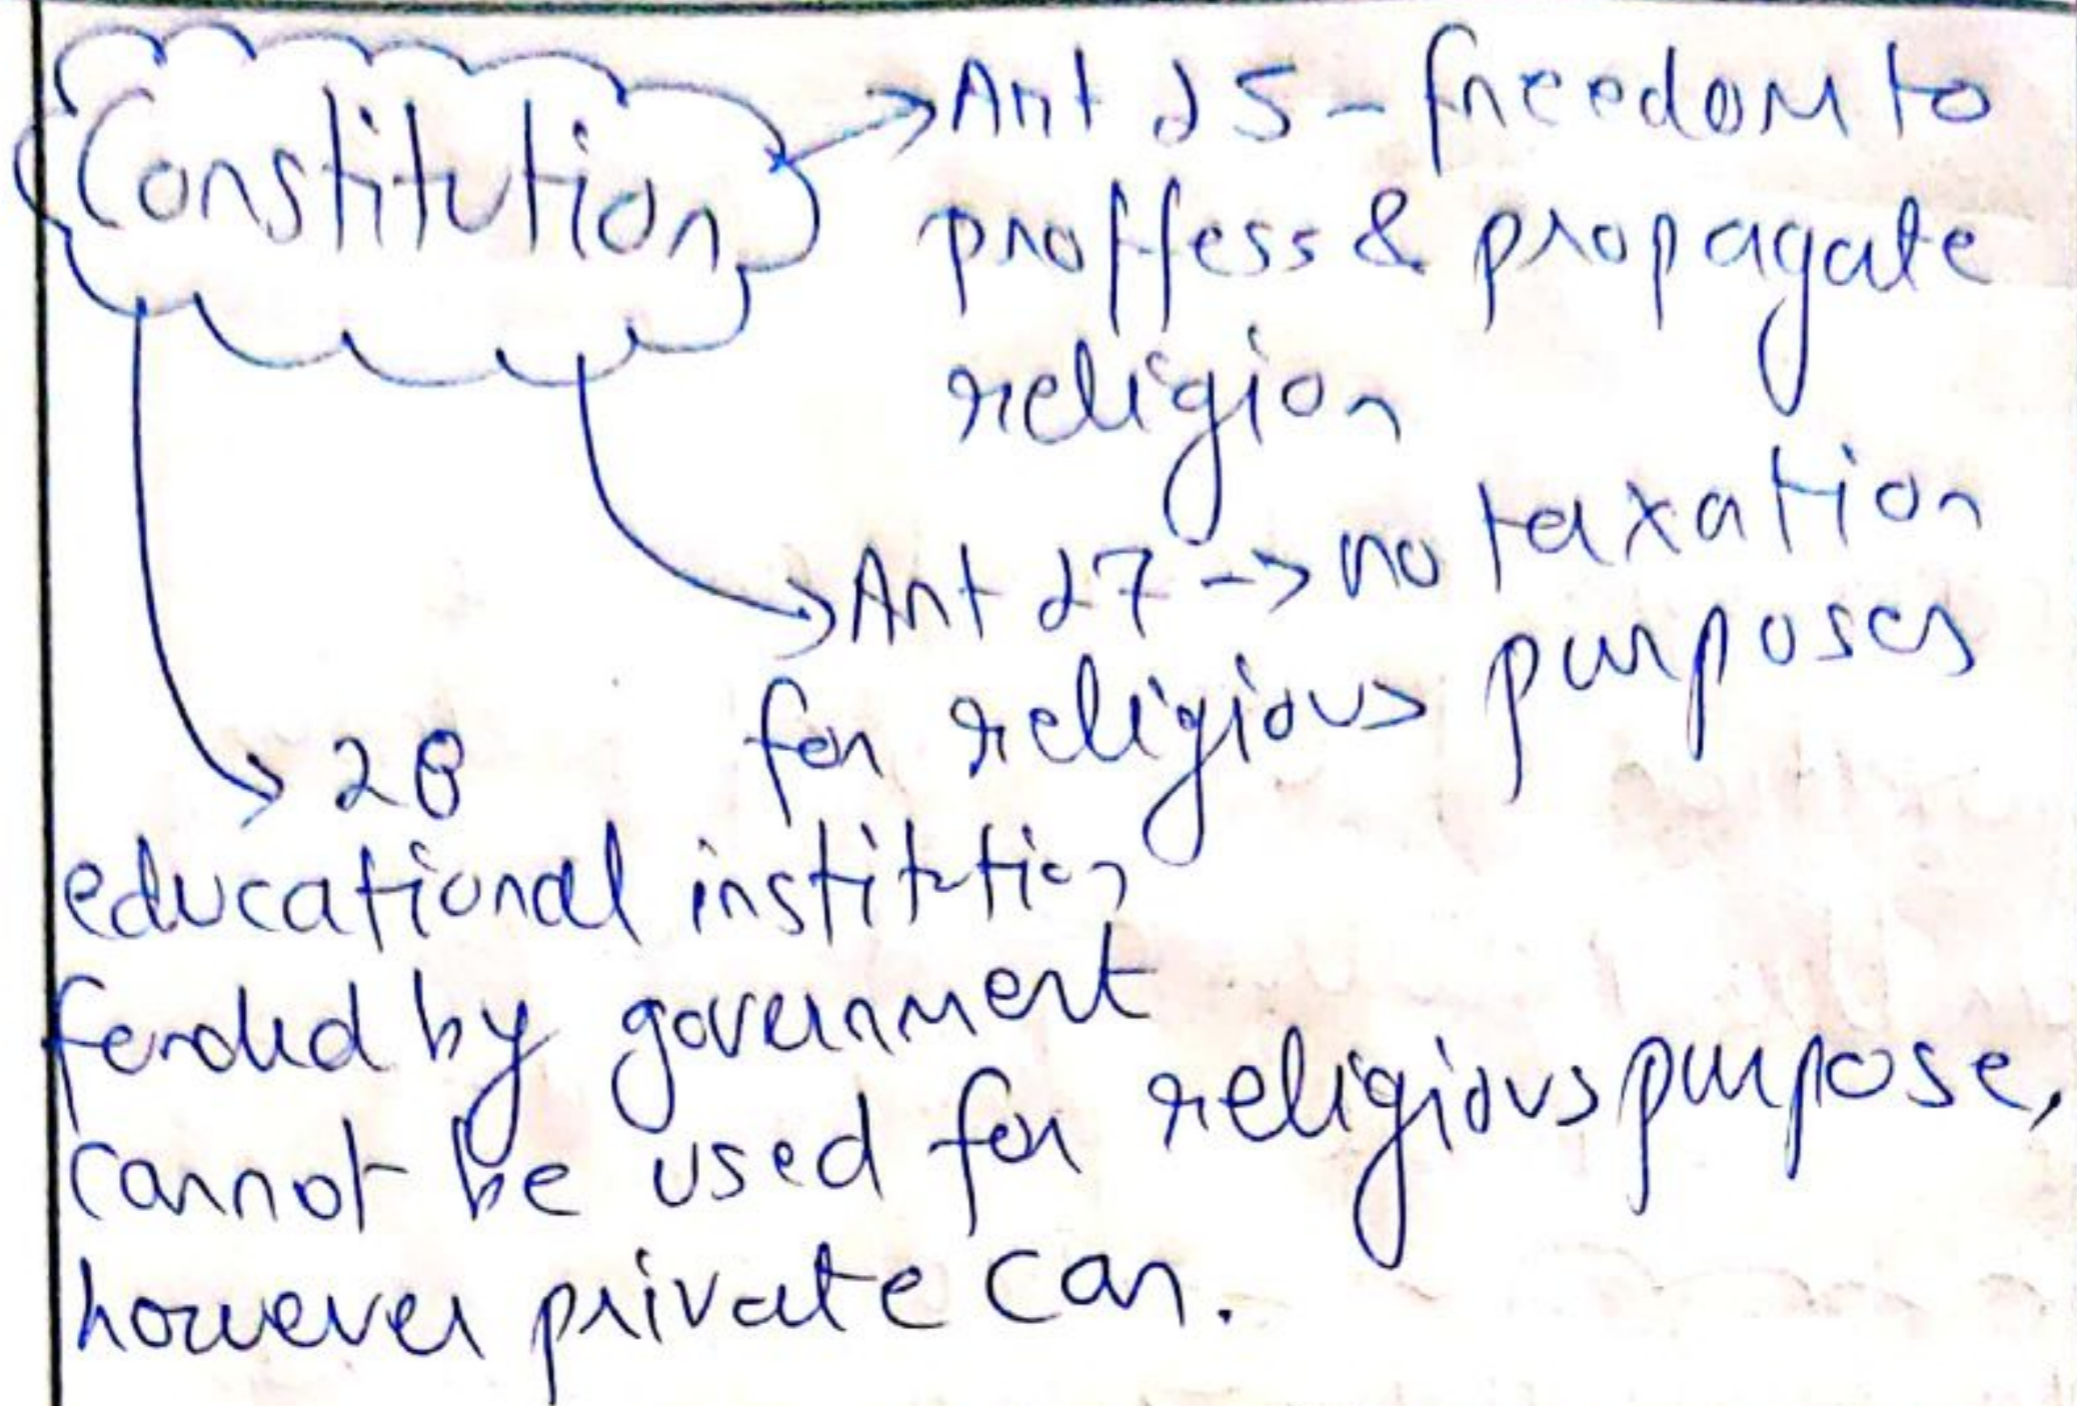 Constitution
Art 25 - freedom to
proffess & propagate
religion
Art 27 -> no taxation
for religious purposes
28
educational institution
funded by government
cannot be used for religious purpose,
however private can.